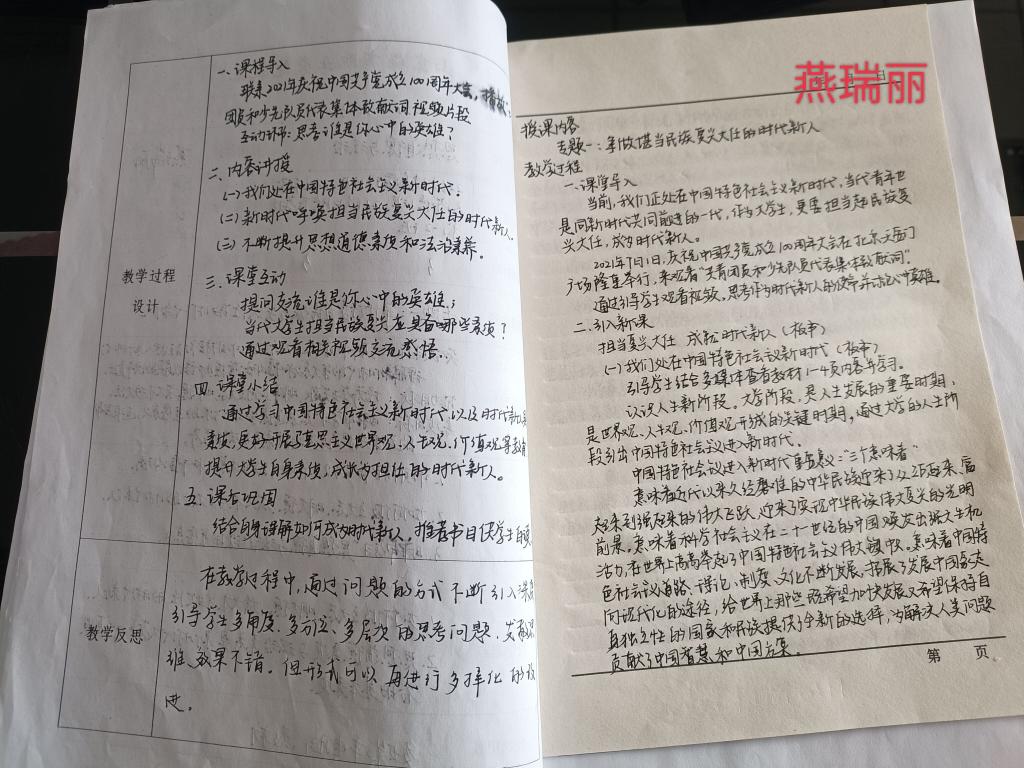 教学过程
设计
一、课程导入
联系2021年庆祝中国共产党成立100周年大会，播放
团员和少先队员代表集体致献词视频片段
互动环节：思考谁是你心中的英雄？
二、内容讲授
(一)我们处在中国特色社会主义新时代．
(二)新时代呼唤担当民族复兴大任的时代新人．
(三)不断提升思想道德素质和法治素养。
三、课堂互动
提问交流：谁是你心中的英雄；
当代大学生担当民族复兴应具备哪些素质？
通过观看相关视频交流感悟．
四、课堂小结
通过学习中国特色社会主义新时代以及时代新人
素质，更好开展马克思主义世界观、人生观、价值观等教育
提升大学生自身素质，成长为担任的时代新人。
五、课后巩固
结合自身理解如何成为时代新人，推荐书目供学生
教学反思
在教学过程中，通过问题的方式不断引入课
引导学生多角度、多方位、多层次的思考问题，
维，效果不错．但形式可以再进行多样化的
进。
燕瑞丽
年 月 日
授课内容
专题一：争做堪当民族复兴大任的时代新人
教学过程
一、课堂导入
当前，我们正处在中国特色社会主义新时代，当代青年也
是同新时代共同前进的一代，作为大学生，更要担当起民族复
兴大任，成为时代新人。
2021年7月1日，庆祝中国共产党成立100周年大会在北京天安门
广场隆重举行，来观看“共青团员和少先队员代表集体致献词”．
通过引导学生观看视频，思考作为时代新人的使命并树心中英雄．
二、引入新课
担当复兴大任 成就时代新人（板书）
(一)我们处在中国特色社会主义新时代（板书）
引导学生结合多媒体查看教材1-4页内容学习．
认识人生新阶段．大学阶段，是人生发展的重要时期，
是世界观、人生观、价值观形成的关键时期，通过大学的人生阶
段引出中国特色社会主义进入新时代．
中国特色社会主义进入新时代重要意义：“三个意味着”
意味着近代以来久经磨难的中华民族迎来了从站起来、富
起来到强起来的伟大飞跃，迎来了实现中华民族伟大复兴的光明
前景，意味着科学社会主义在二十一世纪的中国焕发出强大生机
活力，在世界上高高举起了中国特色社会主义伟大旗帜．意味着中国特
色社会主义道路、理论、制度、文化不断发展，拓展了发展中国家走
向现代化的途径，给世界上那些既希望加快发展又希望保持自
身独立性的国家和民族提供了全新的选择，为解决人类问题
贡献了中国智慧和中国方案。
第 页